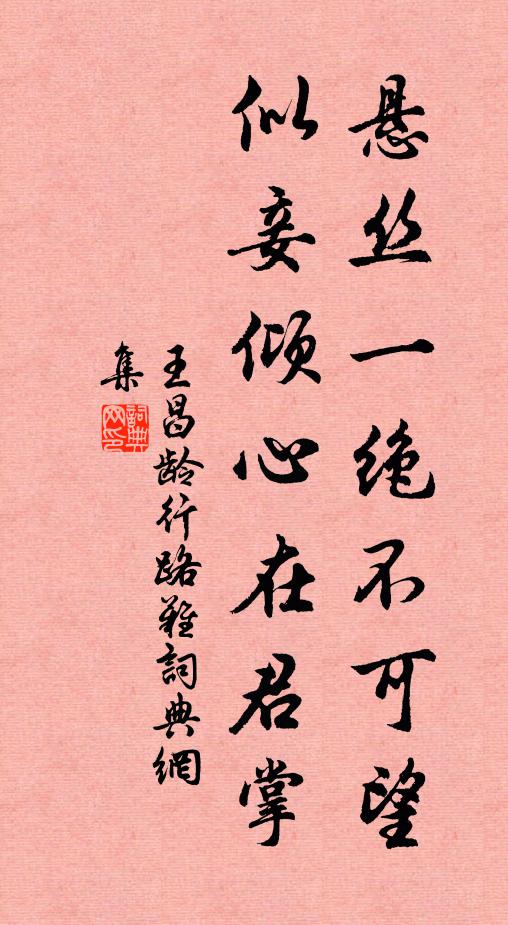 悬丝一绝不可望
似妾倾心在君掌
王昌龄行路难詞典網
集
詞典网印